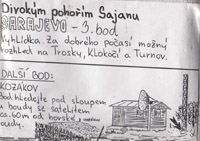 Divokým pohořím Sajanu
SARAJEVO - 3. bod
Vyhlídka. Za dobrého počasí možný
rozhled na Trosky, Klokočí a Turnov.
DALŠÍ BOD:
KOZÁKOV
Bod hledejte pod sloupem
u boudy se satelitem
ca. 60m od horské
boudy.